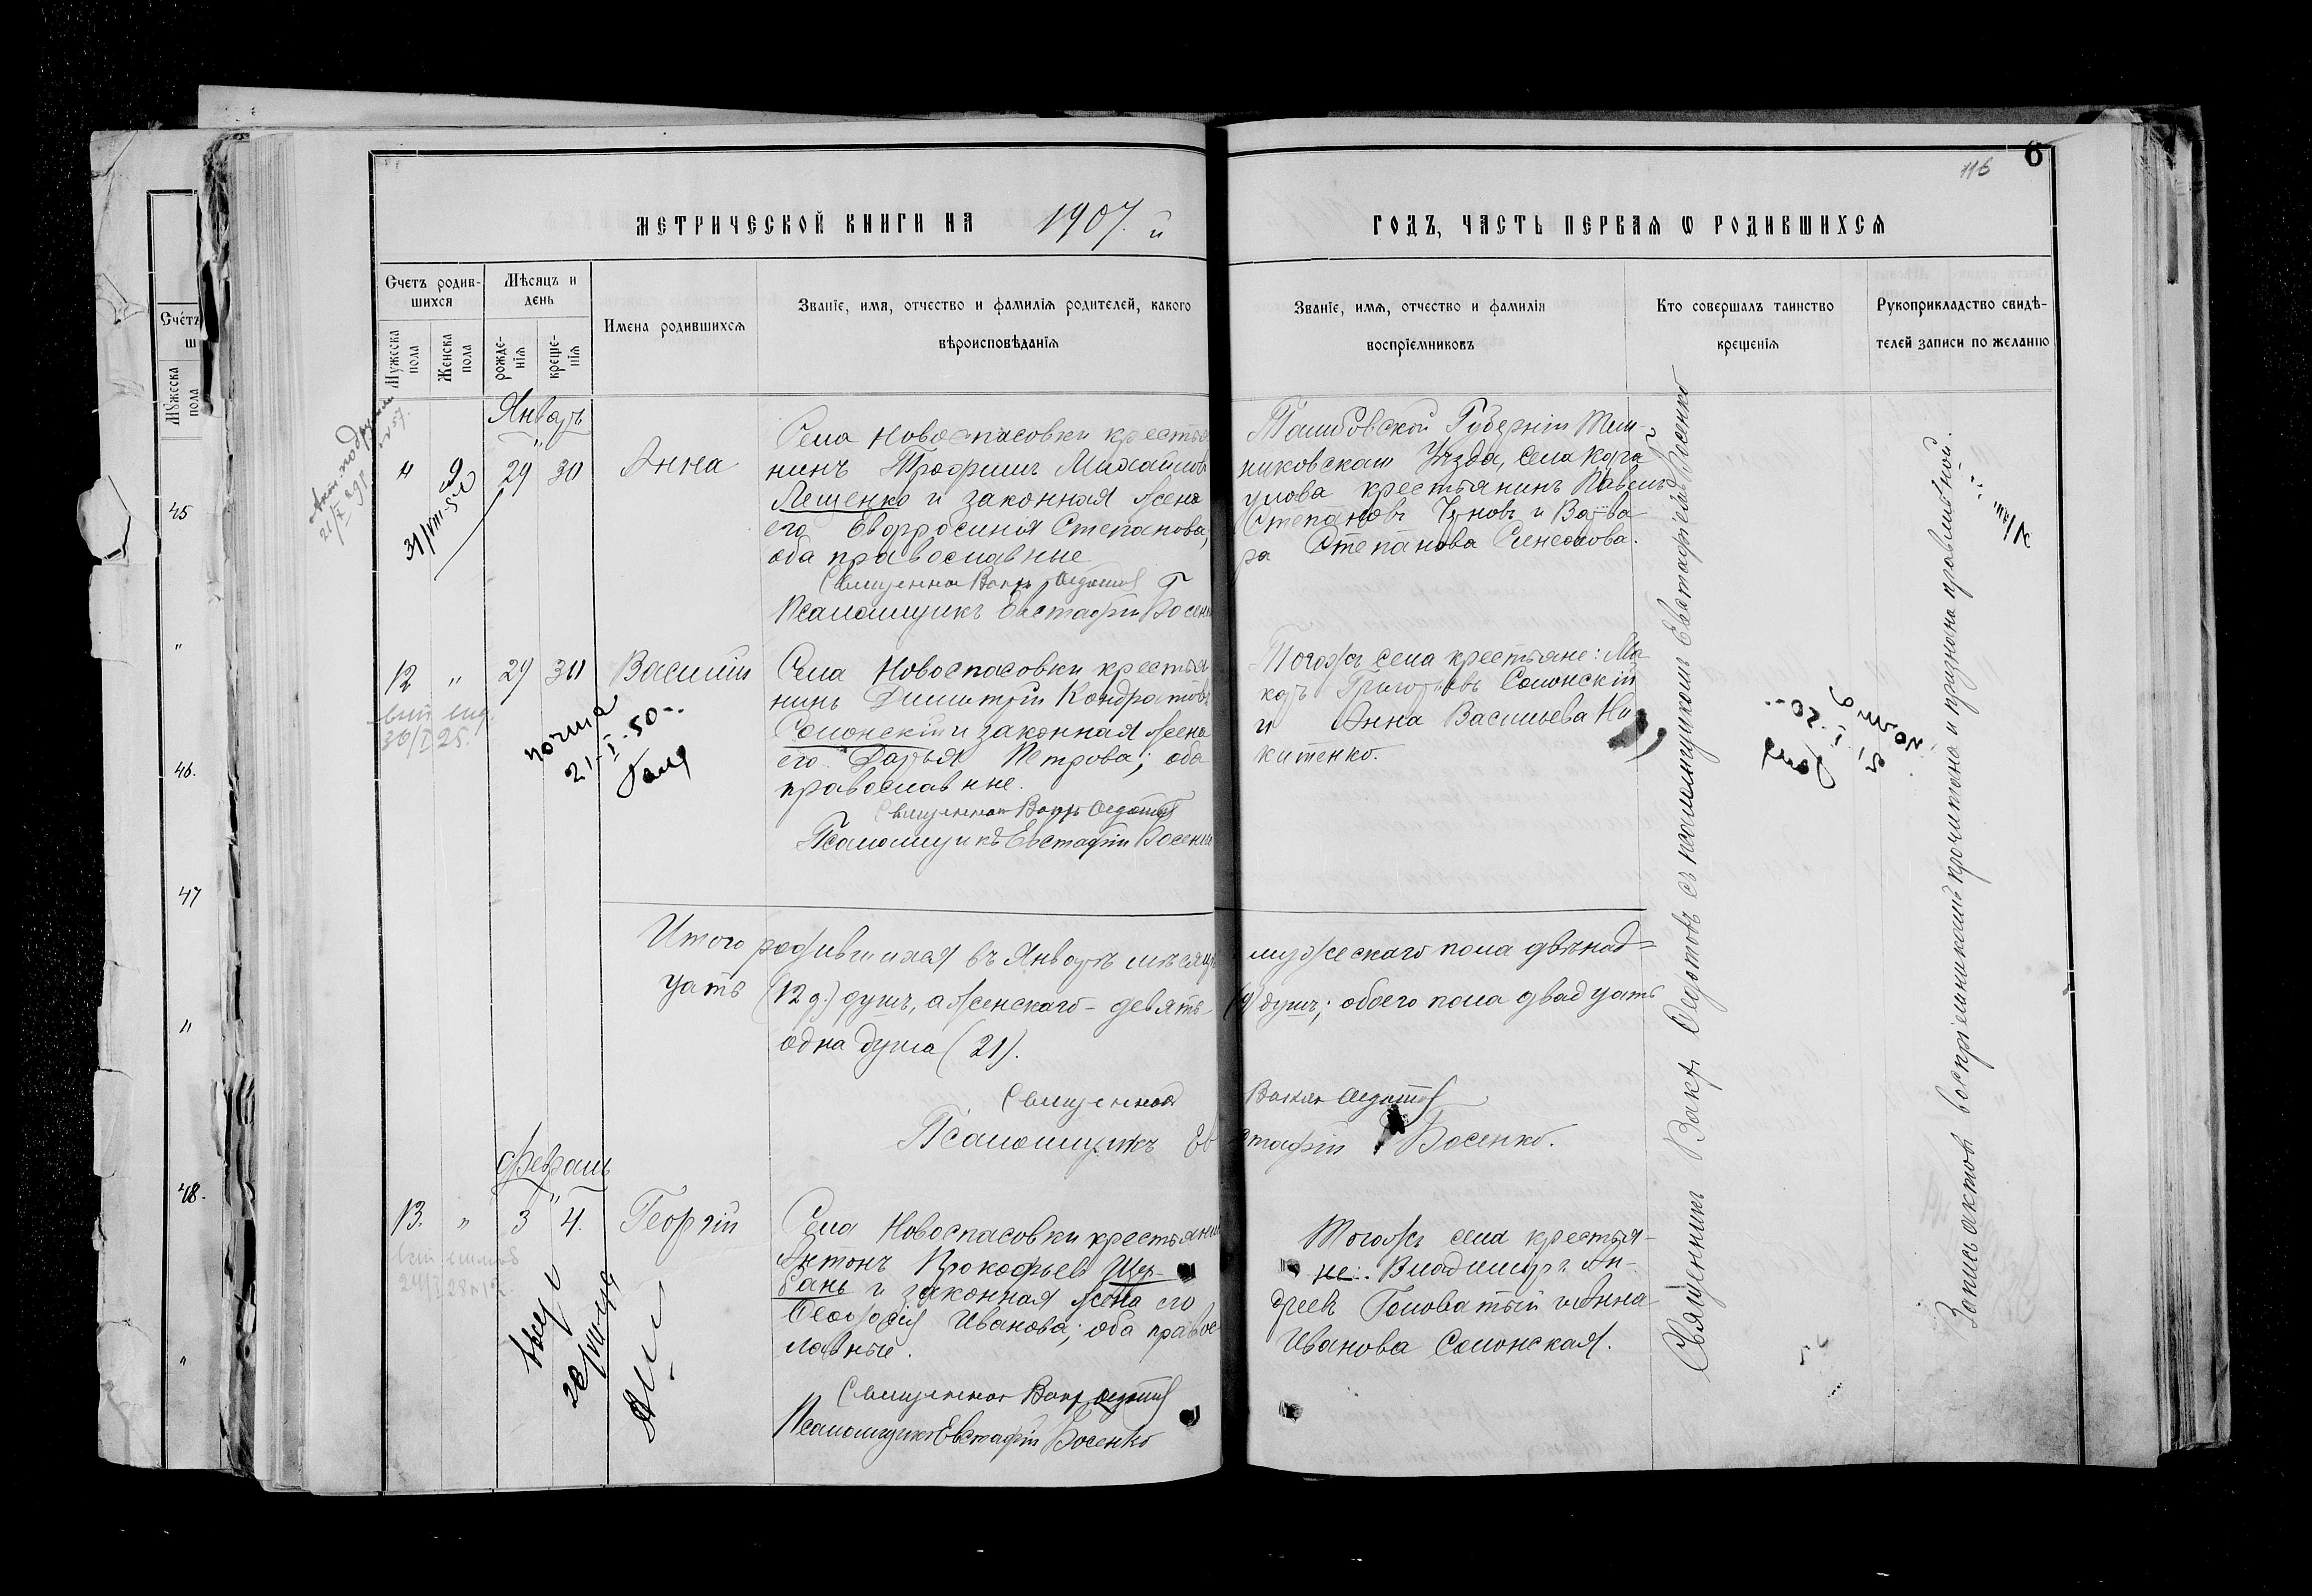 116 6
МЕТРИЧЕСКОЙ КНИГИ НА 1907.й ГОДЪ, ЧАСТЬ ПЕРВАЯ Ѡ РОДИВШИХСЯ
Счетъ родив-
шихся
Мѣсяцъ и
день
Мужеска пола
Женска пола
рожде-
нія
креще-
нія
Имена родившихся
Званіе, имя, отчество и фамилія родителей, какого
вѣроисповѣданія
Званіе, имя, отчество и фамилія
воспріемниковъ
Кто совершалъ таинство
крещенія
Рукоприкладство свидѣ-
телей записи по желанію
Счетъ
ш
Мужеска
пола
45
"
46.
47
"
48.
"
Январь
" 9 29 30 Анна
31/VIII-54
Села Новоспасовки крестья
нинъ Трофимъ Михайловъ
Лещенко и законная жена
его Евфросинія Степанова,
оба православные
Священникъ Федотовъ
Псаломщикъ Евстафій Босенко
Тамбовской Губерніи Тем-
никовскаго Уѣзда, села Кара
улова крестьянинъ Павелъ
Степановъ Чуновъ и Варва
ра Степанова
12 " 29 30 Василій
30/I 25.
21-I-50-
Галя
Села Новоспасовки крестья
нинъ Димитрій Кондратовъ
Солонскій и законная жена
его Дарья Петрова; оба
православные.
Священникъ Федотовъ
Псаломщикъ Евстафій Босенко
Того жъ села крестьяне: Ма
каръ Григорьевъ Солонскій
и Анна Васильева Ни
китенко.
Итого родившихся въ Январѣ мѣсяцѣ мужескаго пола двѣнад-
цать (12 д.) душъ, а женскаго - девять (9) душъ; обоего пола двадцать
одна душа (21).
Священникъ Федотовъ
Псаломщикъ Евстафій Босенко.
Февраль
13. " 3 4. Георгій
Села Новоспасовки крестьянинъ
Антонъ Прокофьевъ Щер-
бань и законная жена его
Феодосія Иванова; оба правос
лавные.
Священникъ Федотовъ
Псаломщикъ Евстафій Босенко
Того жъ села крестья-
не: Владиміръ Ан-
дреевъ Головатый и Анна
Иванова Солонская.
Священникъ Федотовъ съ псаломщикомъ Евстафіемъ Босенко
Запись актовъ воспріемниками прочитана и признана правильной.